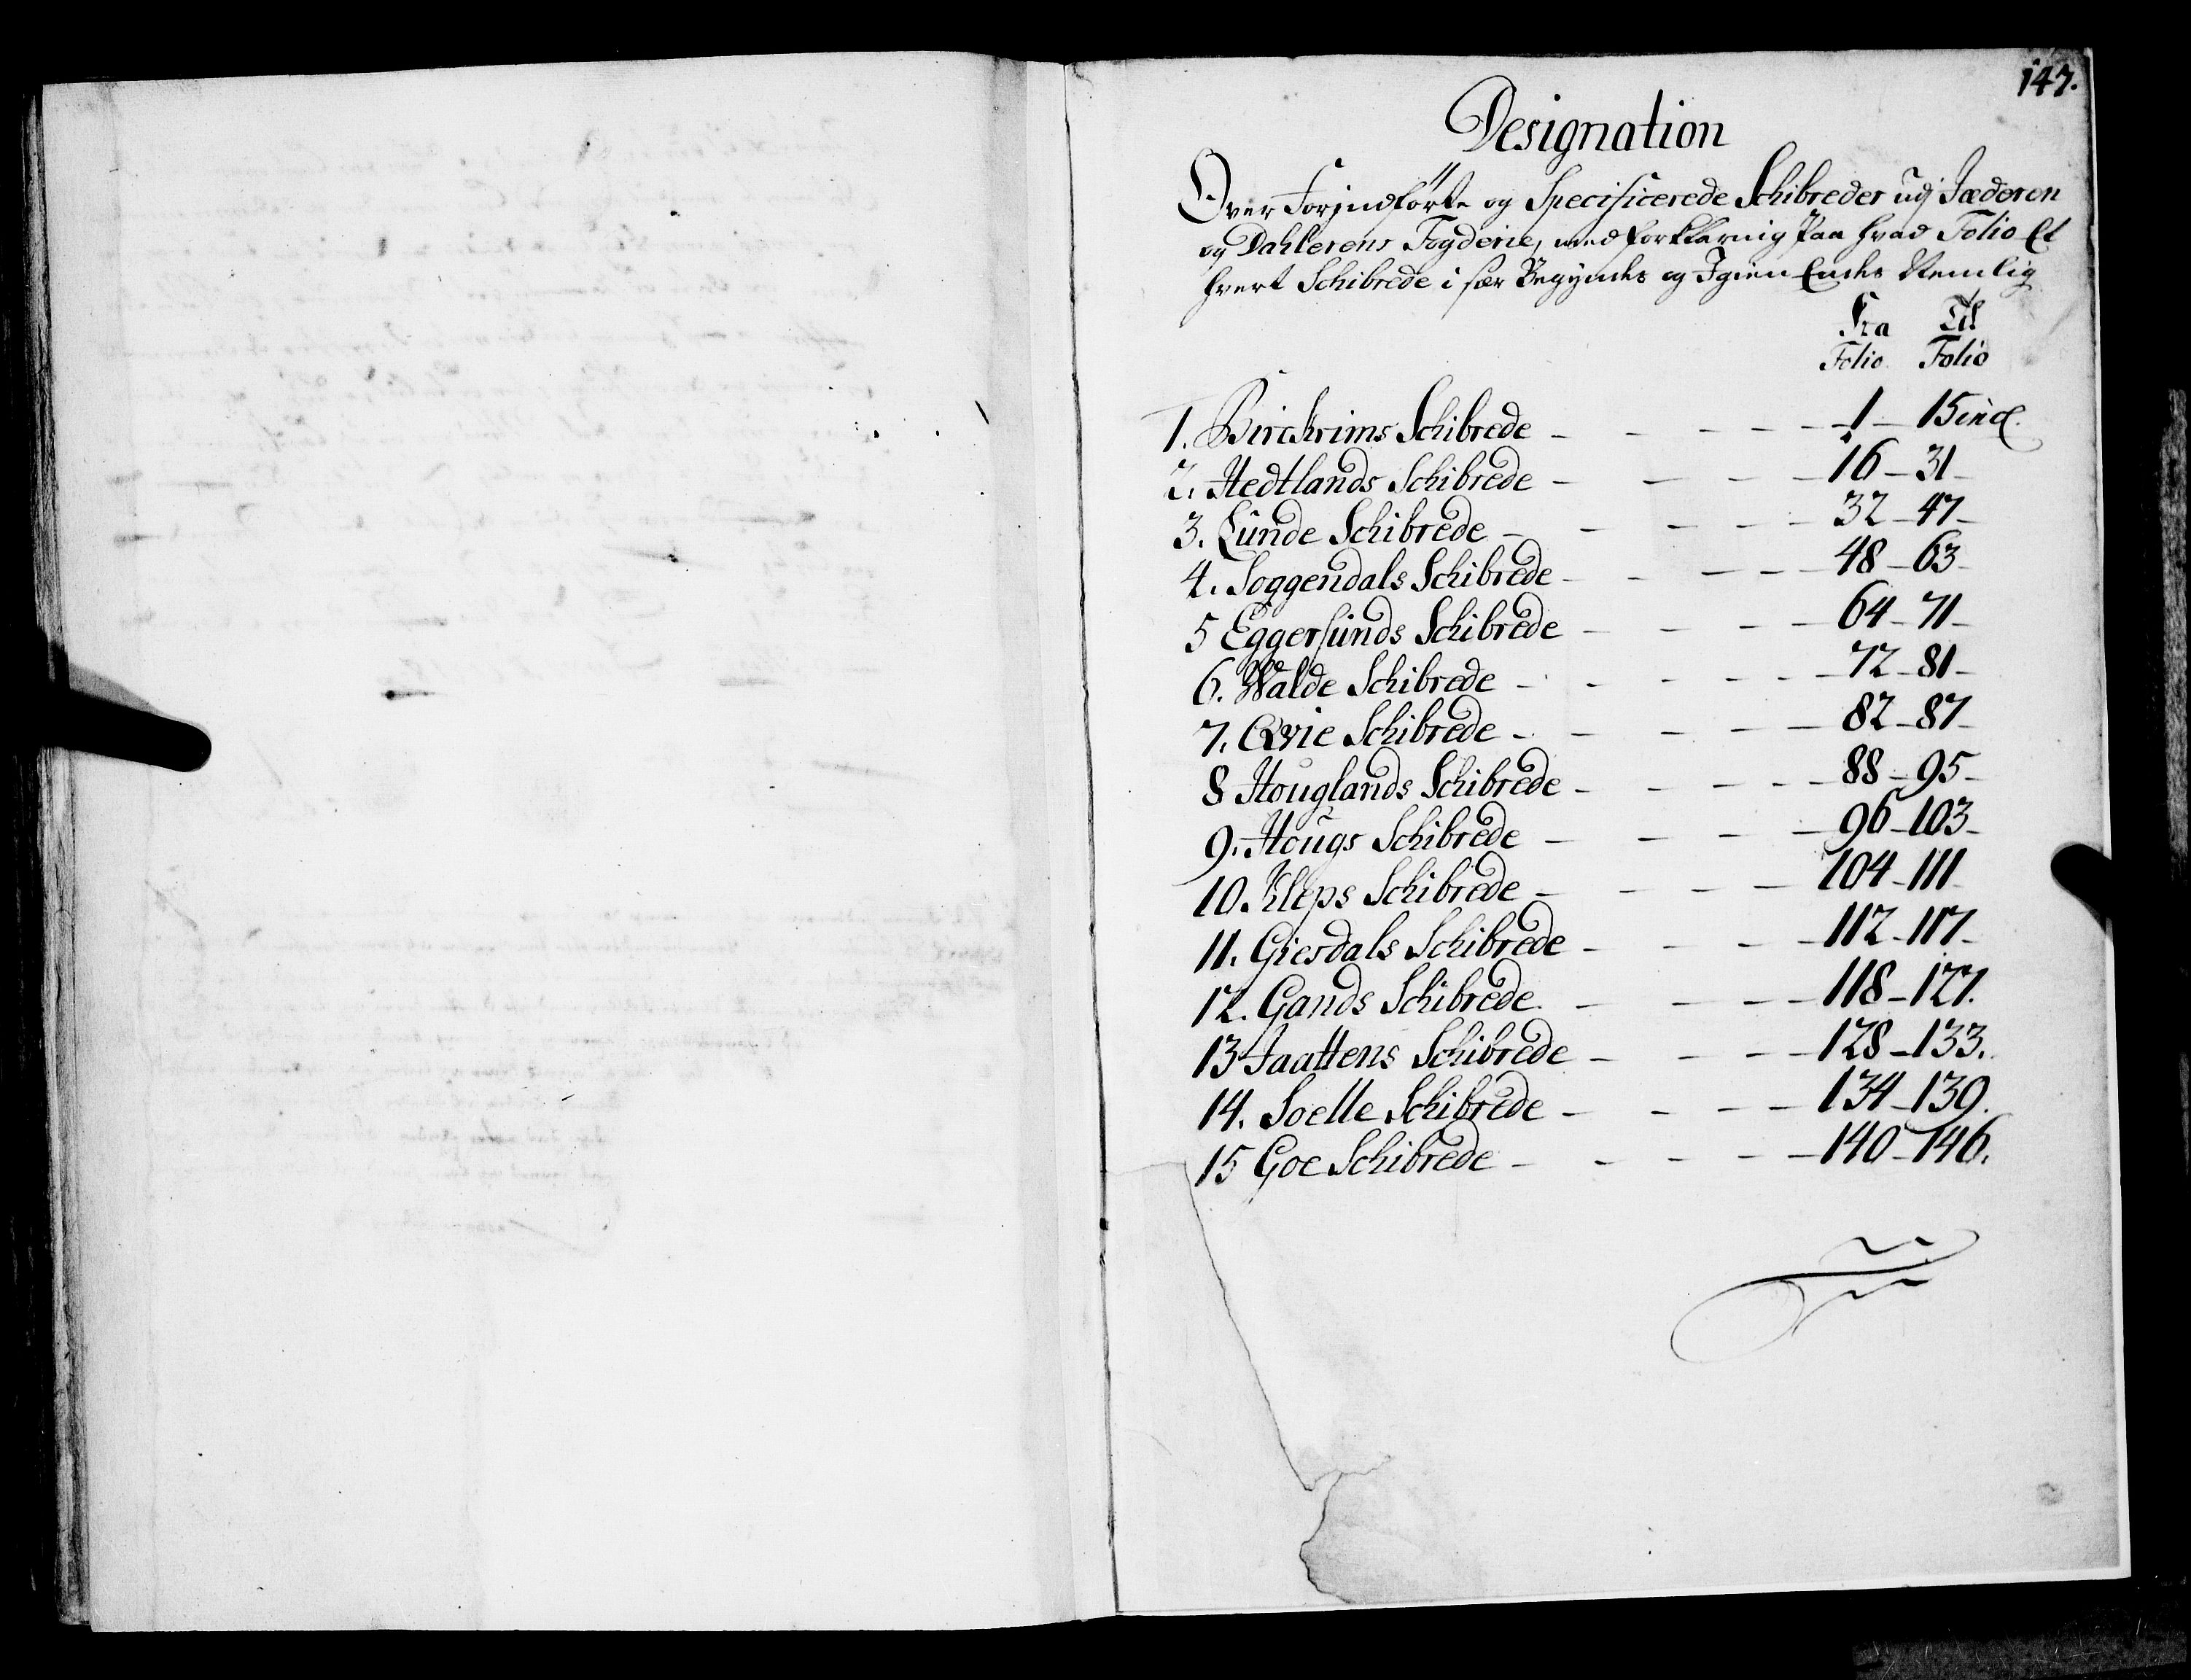 147.
Designation
Over Forjndförte og Specificerede Schibreder udj Jæderen
og Dahlerens Fogderie, med forklaring Paa hvad Folio Et
hvert Schibrede i sær Begyndes og Igien Endes Nemlig
Fra Til
Folio Folio
1. Birckrims Schibrede - - - - - 1 - 15 incl.
2. Hedtlands Schibrede - - - - 16 - 31 -
3. Lunde Schibrede - - - - - 32 - 47 -
4. Soggendals Schibrede - - - - - 48 - 63 -
5 Eggersunds Schibrede - - - - 64 - 71 -
6. Walde Schibrede - - - - - - 72 - 81 -
7. Qvie Schibrede - - - - - 82 - 87 -
8 Houglands Schibrede - - - - - 88 - 95 -
9. Hougs Schibrede - - - - 96 - 103 -
10. Kleps Schibrede - - - - 104 - 111 -
11. Giesdals Schibrede - - - - 112 - 117 -
12. Gands Schibrede - - - - 118 - 127.
13 Jaattens Schibrede - - - - 128 - 133.
14. Soelle Schibrede - - - - 134 - 139.
15 Goe Schibrede - - - - - 140 - 146.